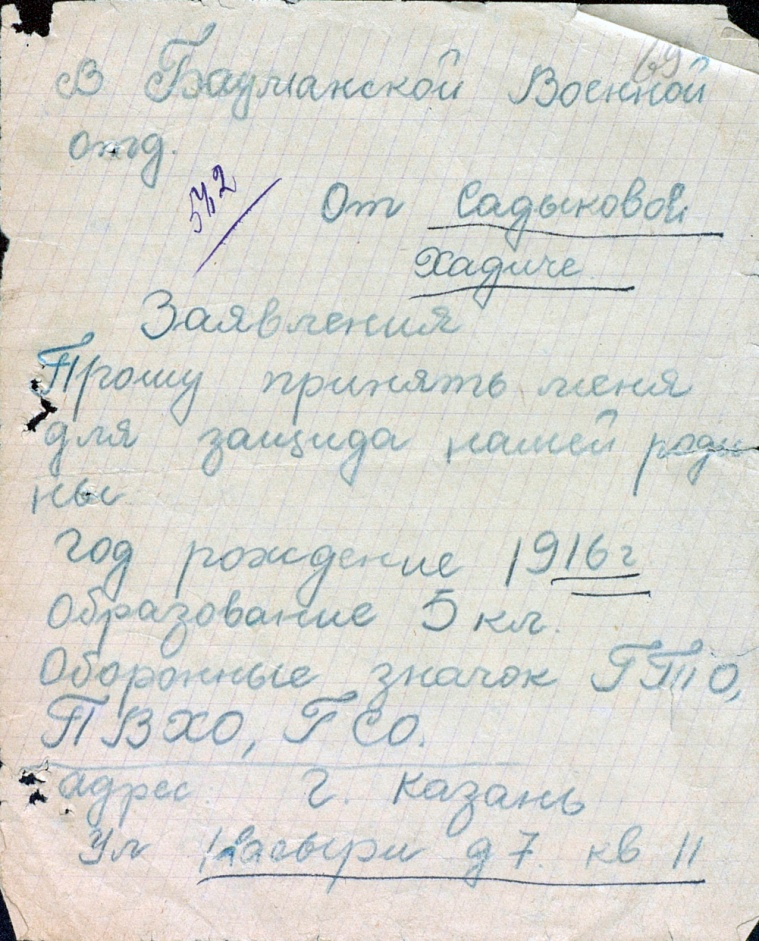 69
В Бауманской Военной
отд.
572
От Садыковой
Хадиче
Заявления
Прошу принять меня
для защида нашей роди
ны
год рождение 1916 г
Образование 5 кл.
Оборонные значок ГТО,
ПВХО, ГСО.
адрес г. Казань
Ул д 7. кв 11